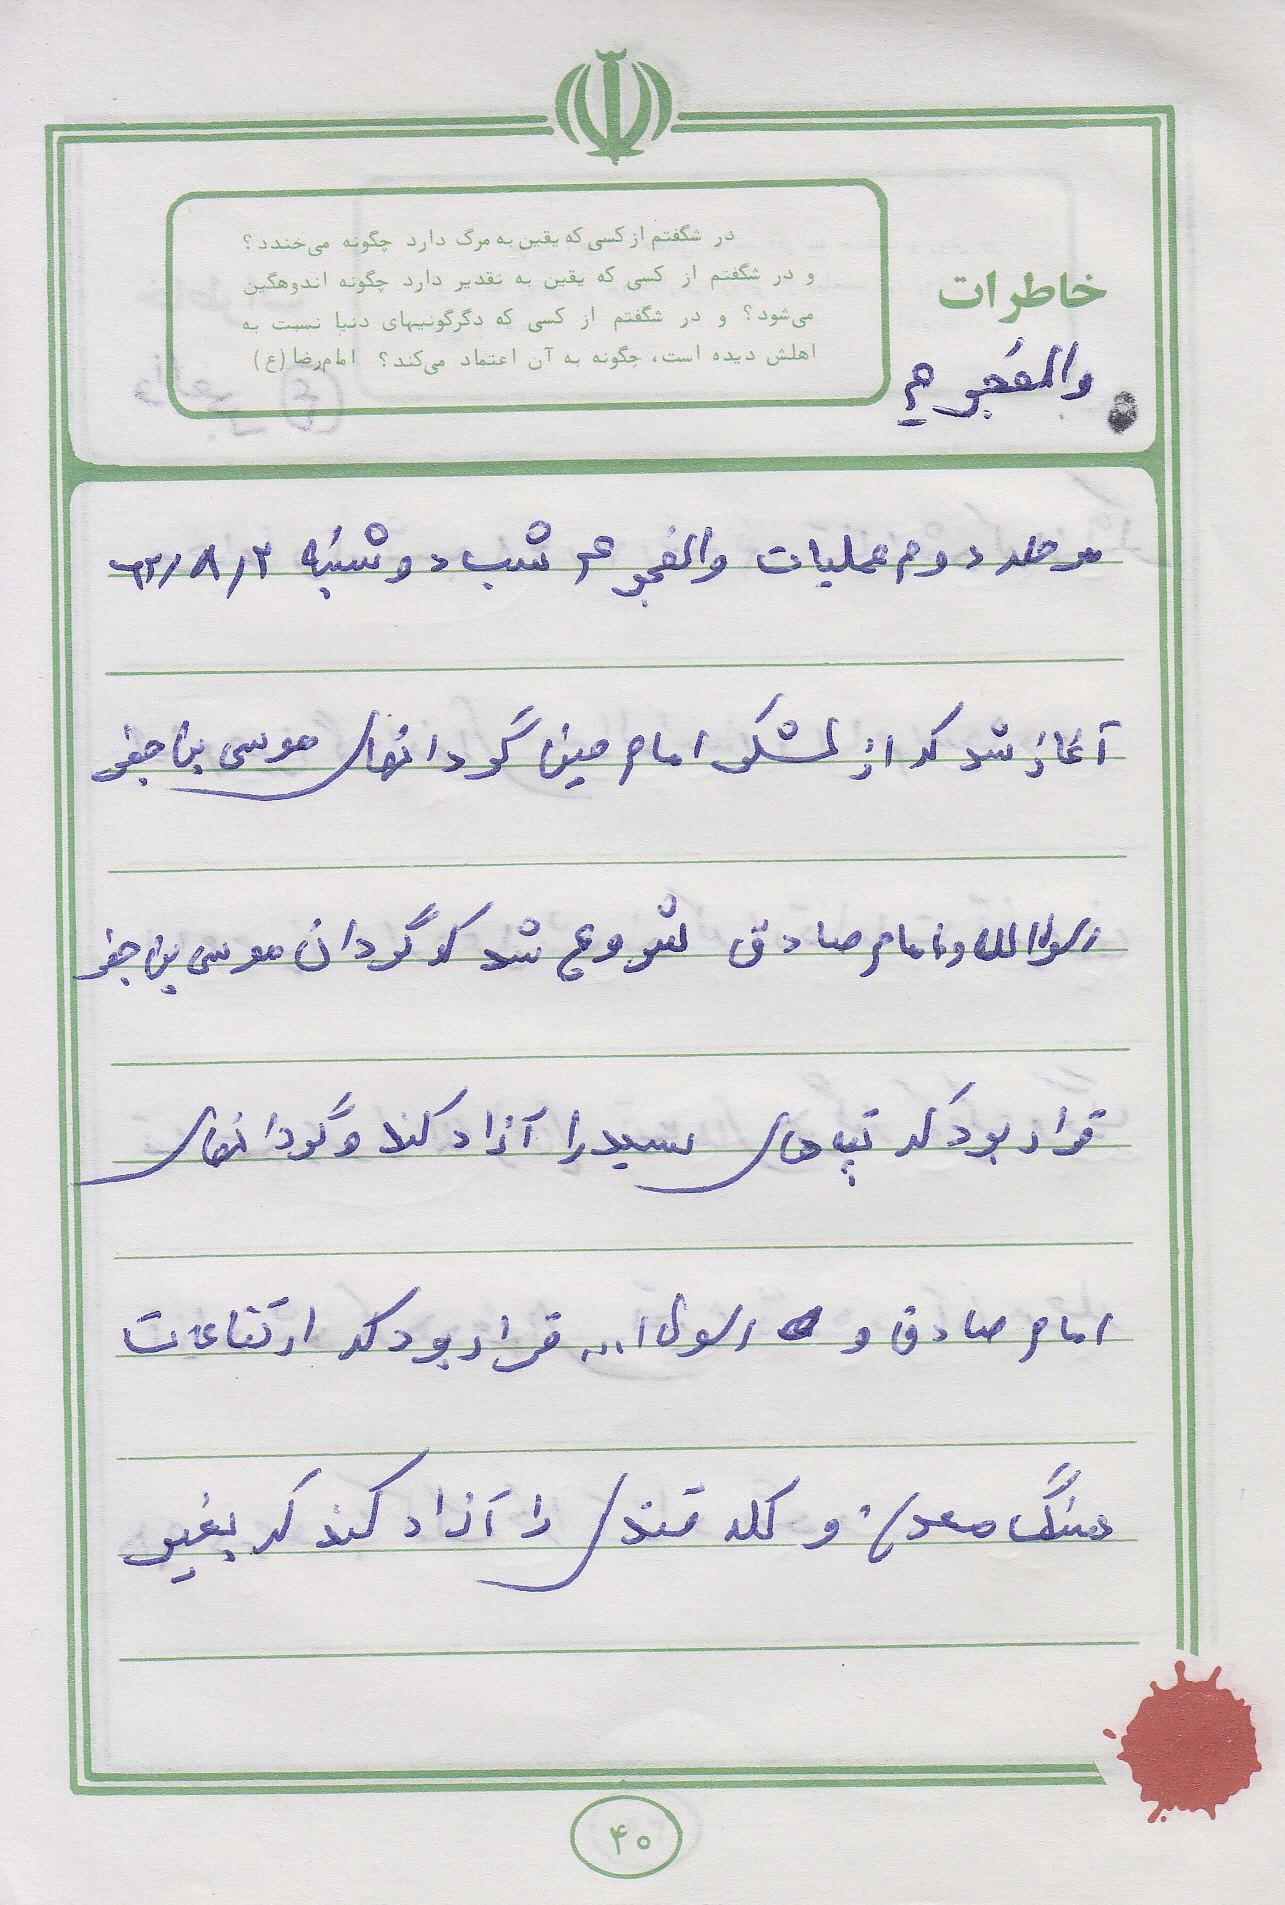 در شگفتم از کسی که یقین به مرگ دارد چگونه می‌خندد؟
و در شگفتم از کسی که یقین به تقدیر دارد چگونه اندوهگین
می‌شود؟ و در شگفتم از کسی که دگرگونیهای دنیا نسبت به
اهلش دیده است، چگونه به آن اعتماد می‌کند؟ امام‌رضا (ع)
خاطرات
والفجر ۴
مرحله دوم عملیات والفجر ۴ شب دوشنبه ۶۲/۸/۲
آغاز شد که از لشکر امام حسین گردانهای موسی بن جعفر
رسول الله و امام صادق شروع شد که گردان موسی بن جعفر
قرار بود که تپه های سید را آزاد کند و گردانهای
امام صادق و رسول ا... قرار بود که ارتفاعات
سنگ معدن و کله قندی را آزاد کند که بغیر
۴۰